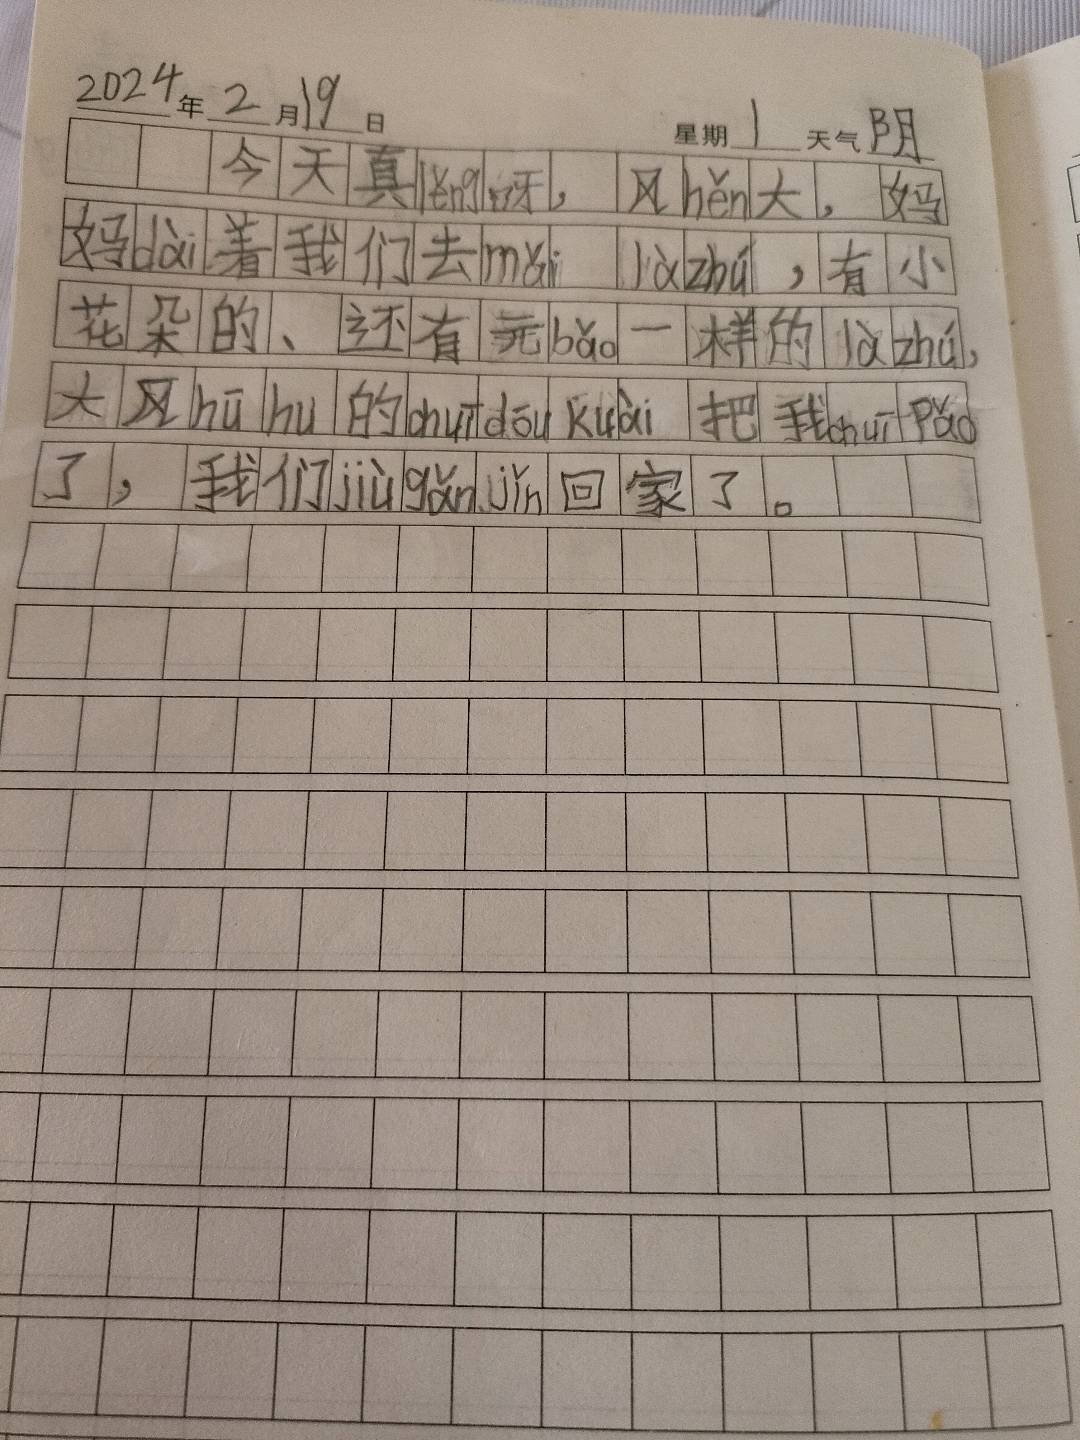 2024年2月19日 星期1 天气阴
今天真lěng呀，风hěn大，妈
妈dài着我们去mǎi làzhú，有小
花朵的、还有元bǎo一样的làzhú，
大风hūhu的chuīdōukuài把我chuīpǎo
了，我们jiùgǎnjǐn回家了。